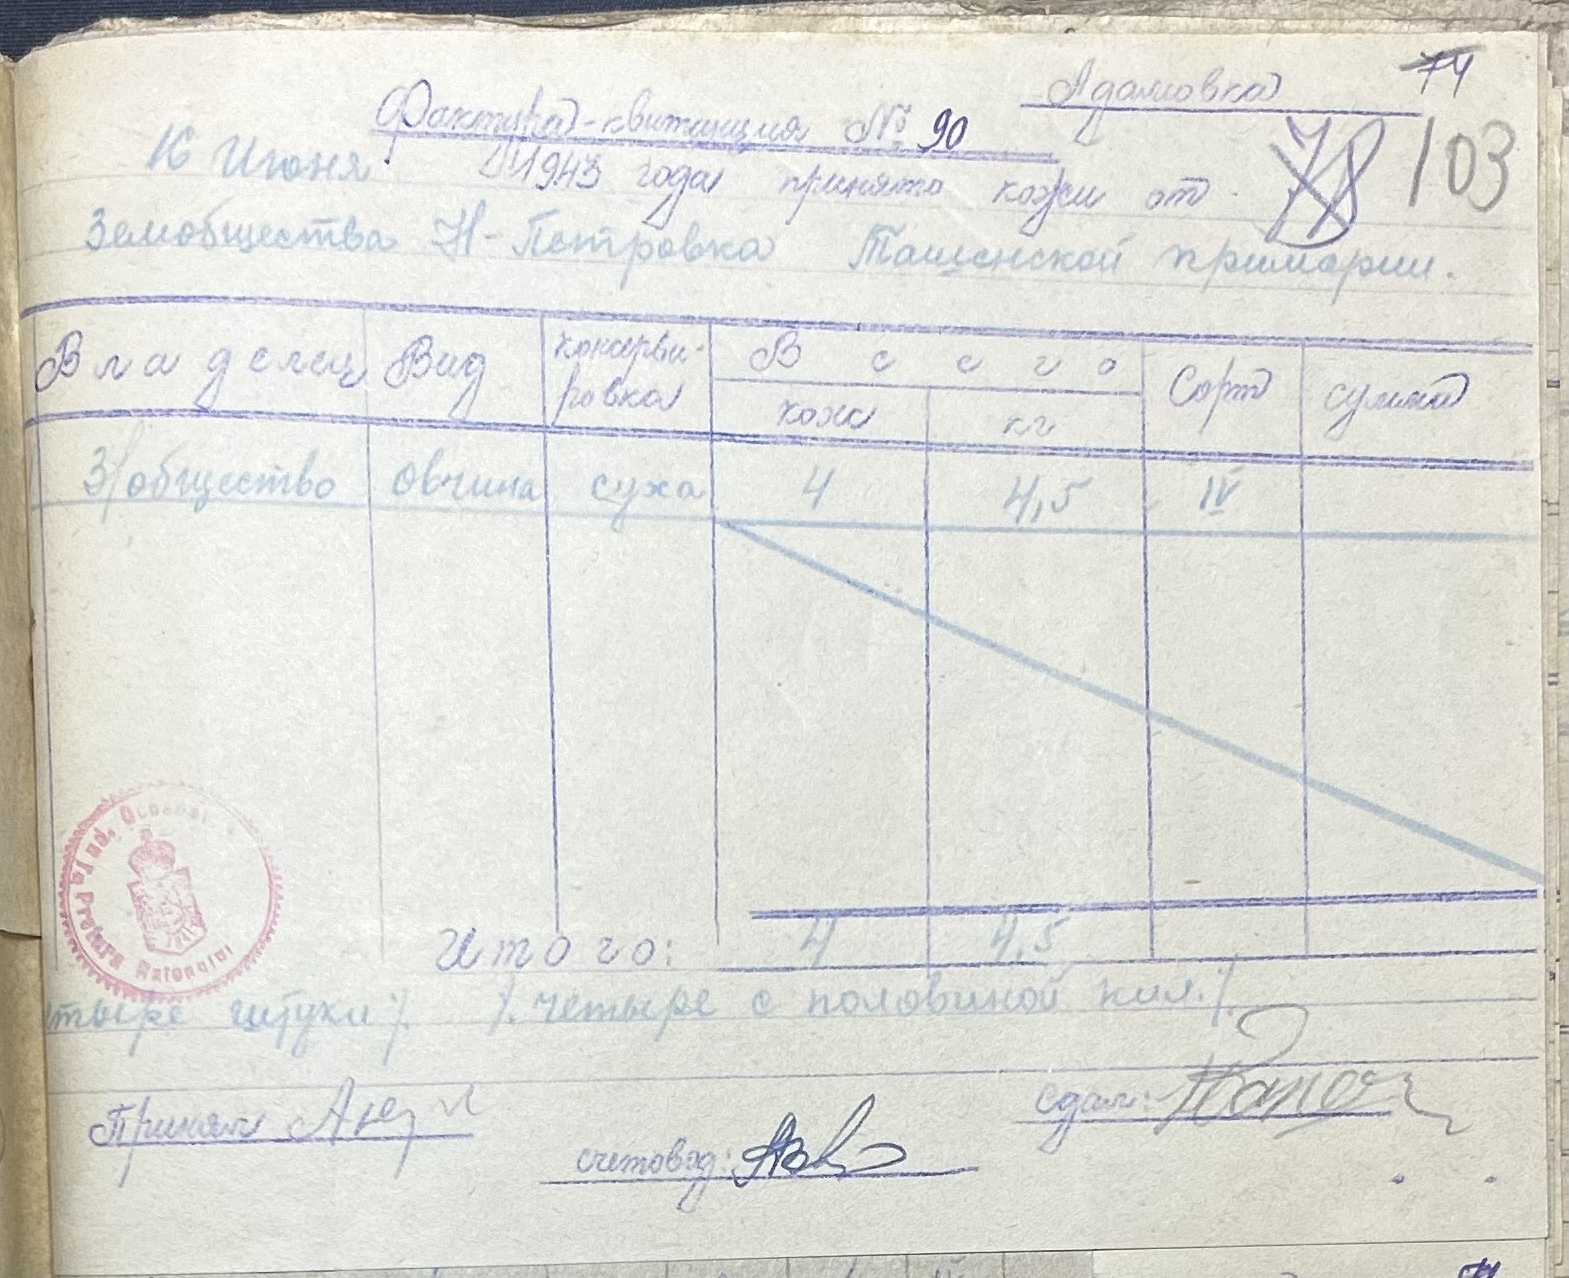 Адамовка 74
Фактура-квитанция № 90
78 103
16 Июня 1943 года принято кожи от
Земобщества Н-Петровка Ташенской примарии.
Владелец Вид консерви-ровка Всего Сорт сумма
кож кг
З/общество овчина суха 4 4,5 IV
Итого: 4 4,5
Pretura Raionului
тыре штуки /. /. четыре с половиной кил. /.
Принял
сдал:
счетовод: